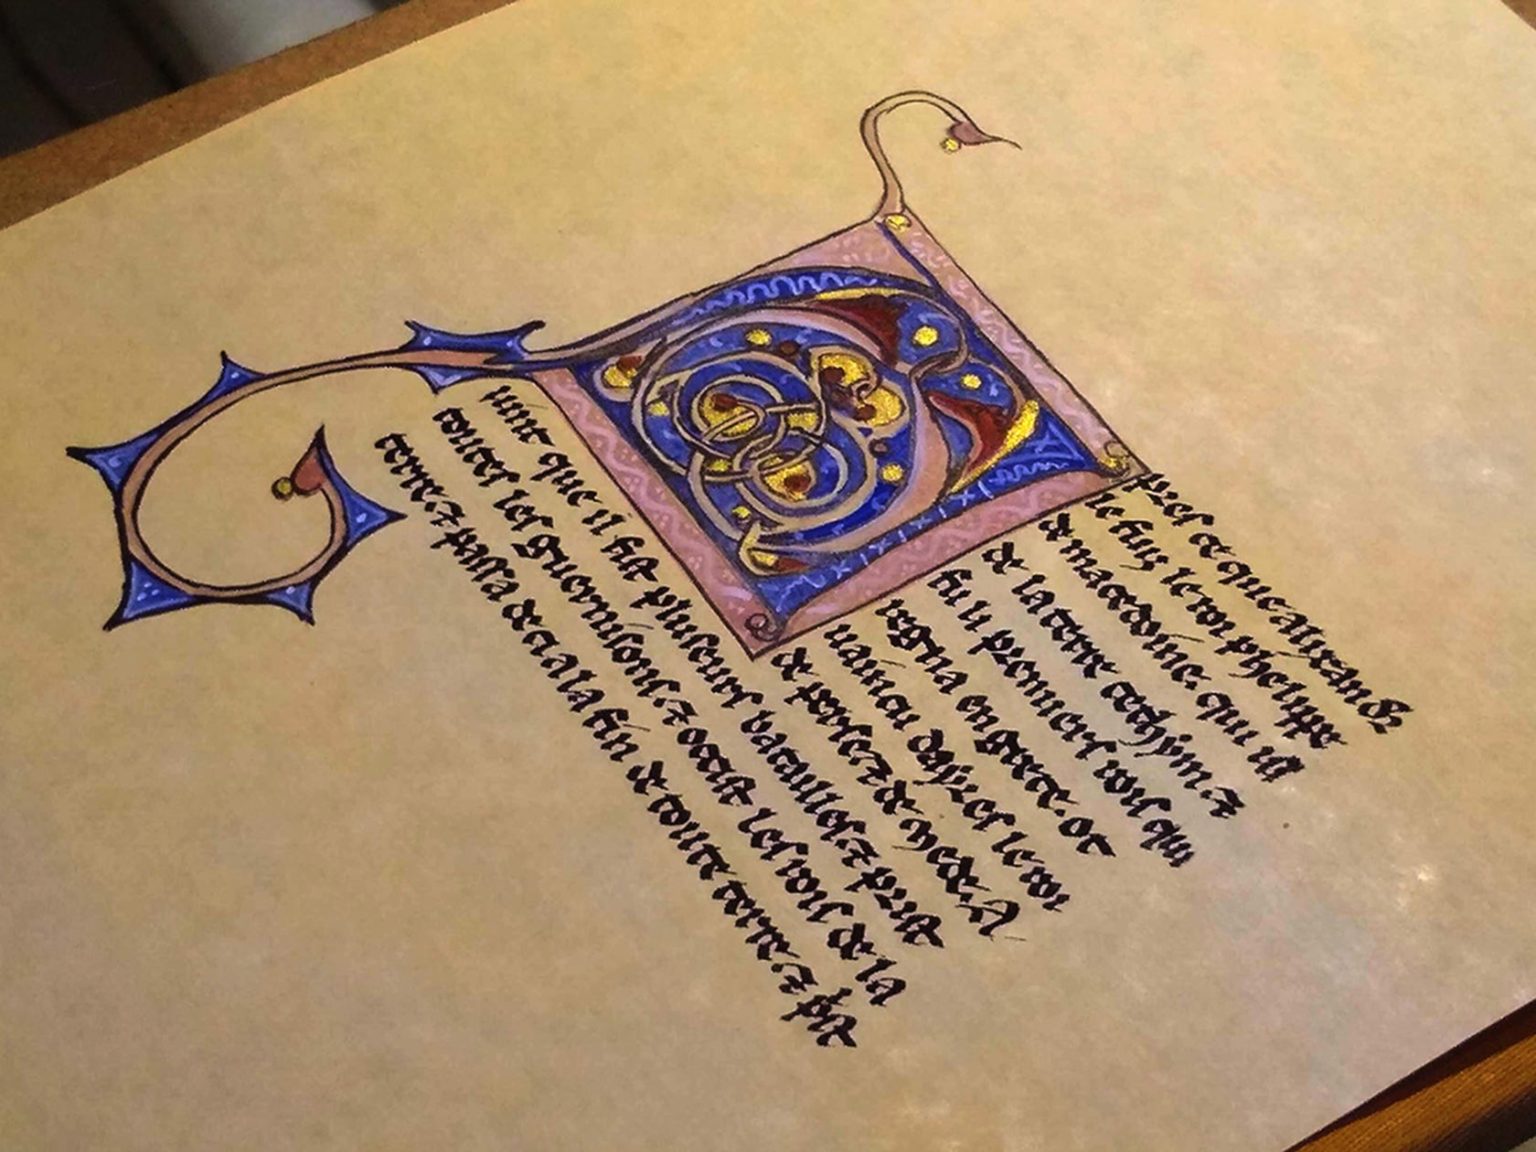 Apres ce que alixandre
le fiuz le roi phelippe
de macedoine. qui ist
de la terre cethym. ⁊
fu li premiers rois qui
regna en grece. ot
uaincu dayres le roi
de perse ⁊ de mede. A
uint que il fist pluseurs batailles. ⁊ prist
toutes les guernisons. ⁊ ocist les rois de la
terre. ⁊ passa de ca la fin de toute terre. ⁊